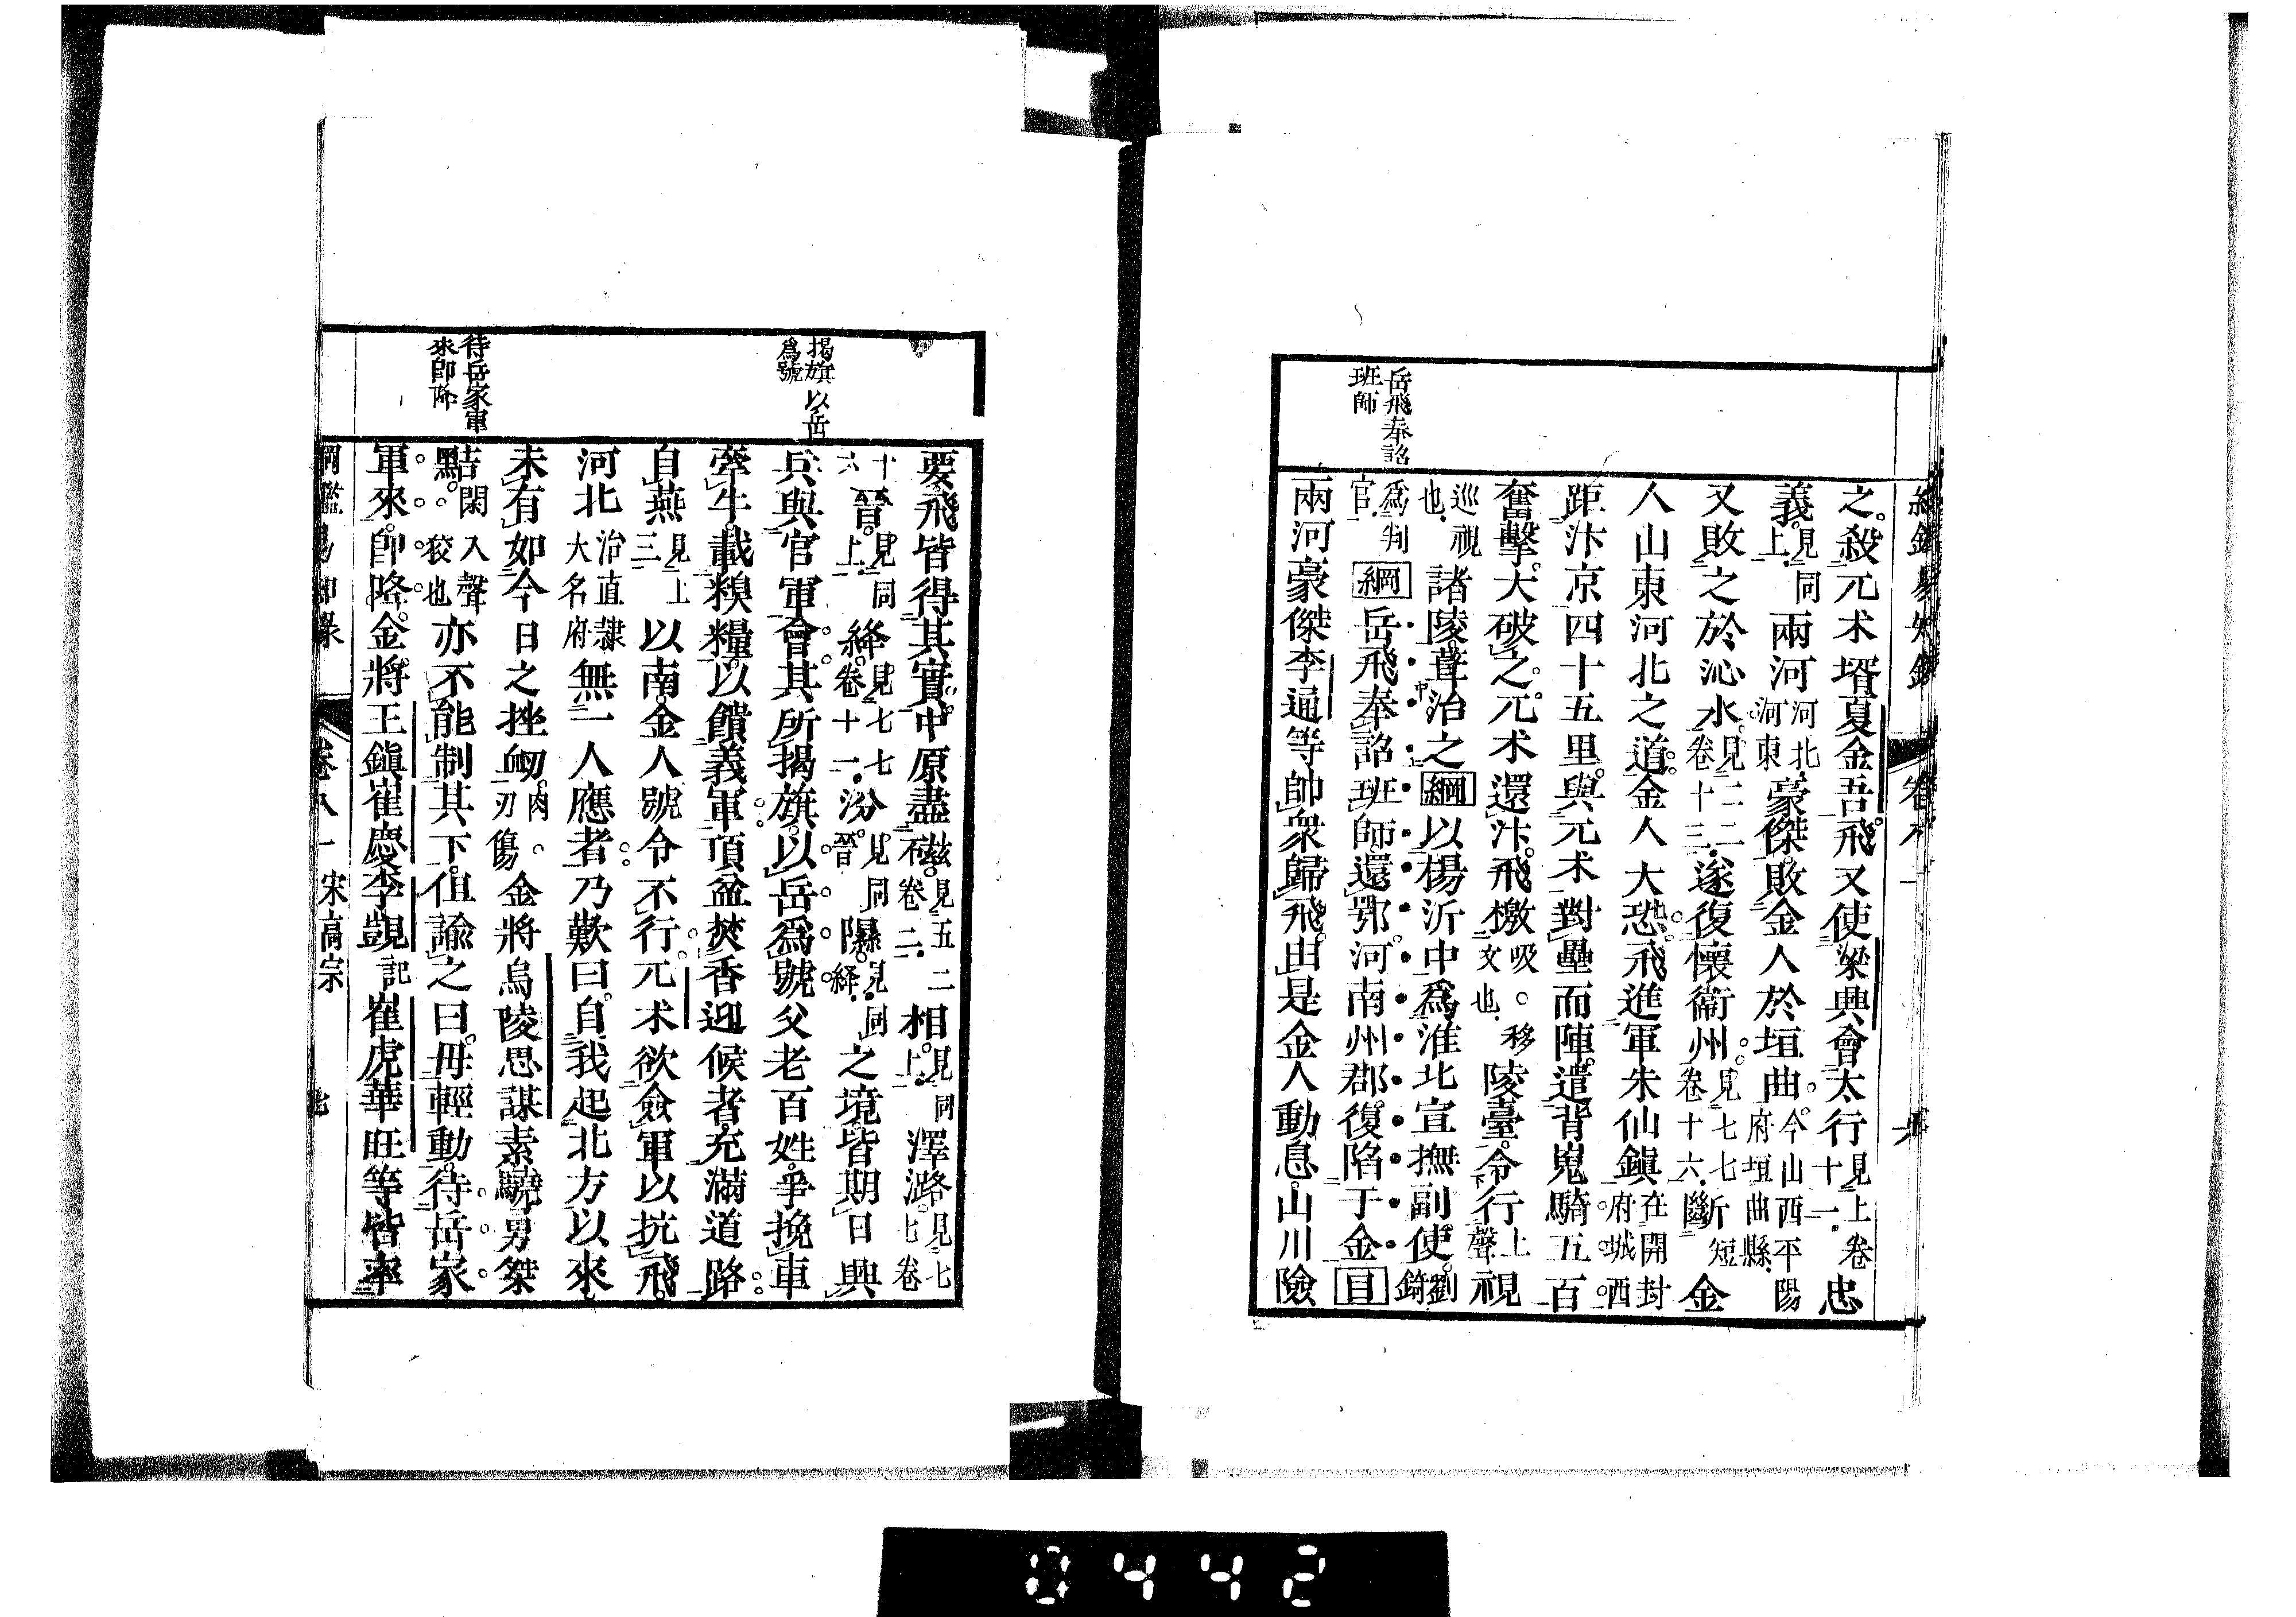 岳飛奉詔
班師
之殺兀术壻夏金吾飛又使梁興會太行見上卷十一忠
義見同上兩河河北河東豪傑敗金人於垣曲今山西平陽府垣曲縣
又敗之於沁水見二二卷十三遂復懷衞州見七七卷十六斷短金
人山東河北之道金人大恐飛進軍朱仙鎭在開封府城西
距汴京四十五里與兀术對壘而陣遣背嵬騎五百
奮擊大破之兀术還汴飛檄吸文也移陵臺令行上聲視
巡視也諸陵葺治之綱以楊沂中爲淮北宣撫副使劉錡
爲判官綱岳飛奉詔班師還鄂河南州郡復陷于金目
兩河豪傑李通等帥衆歸飛由是金人動息山川險
揭旗以岳
爲號
待岳家軍
來卽降
要飛皆得其實中原盡磁見五二卷二相見同上澤潞見七七卷
十六晉見同上絳見七七卷十一汾見同晉隰見同絳之境皆期日興
兵與官軍會其所揭旗以岳爲號父老百姓爭挽車
牽牛載糗糧以饋義軍頂盆焚香迎候者充滿道路
自燕見上三以南金人號令不行兀术欲僉軍以抗飛
河北治直隷大名府無一人應者乃歎曰自我起北方以來
未有如今日之挫衂肉刃傷金將烏陵思謀素驍勇桀
黠閑入聲狡也亦不能制其下但諭之曰毋輕動待岳家
軍來卽降金將王鎭崔慶李覬記崔虎華旺等皆率
宋高宗
0442